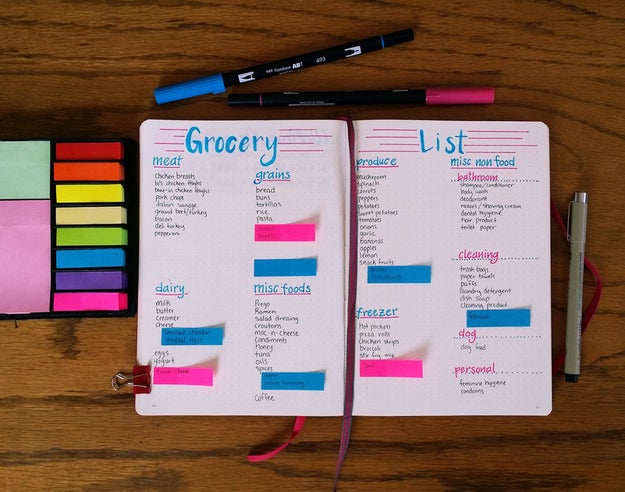 Grocery List
meat
chicken breasts
b/s chicken thighs
bone-in chicken thighs
pork chops
italian sausage
ground beef/turkey
bacon
deli turkey
pepperoni
grains
bread
buns
tortillas
rice
pasta
dairy
milk
butter
creamer
cheese
shredded cheddar
eggs
yogurt
cream cheese
misc foods
Prego
Ramen
salad dressing
croutons
mac-n-cheese
condiments
honey
tuna
oils
spices
coffee
produce
mushroom
spinach
carrots
peppers
potatoes
sweet potatoes
tomatoes
onions
garlic
bananas
apples
lemon
snack fruits
freezer
hot pockets
pizza rolls
chicken strips
broccoli
stir fry mix
misc non food
bathroom
shampoo/conditioner
body wash
deodorant
razors/shaving cream
dental hygiene
hair product
toilet paper
cleaning
trash bags
paper towels
puffs
laundry detergent
dish soap
cleaning product
dog
dog food
personal
feminine hygiene
condoms
Tombow
493